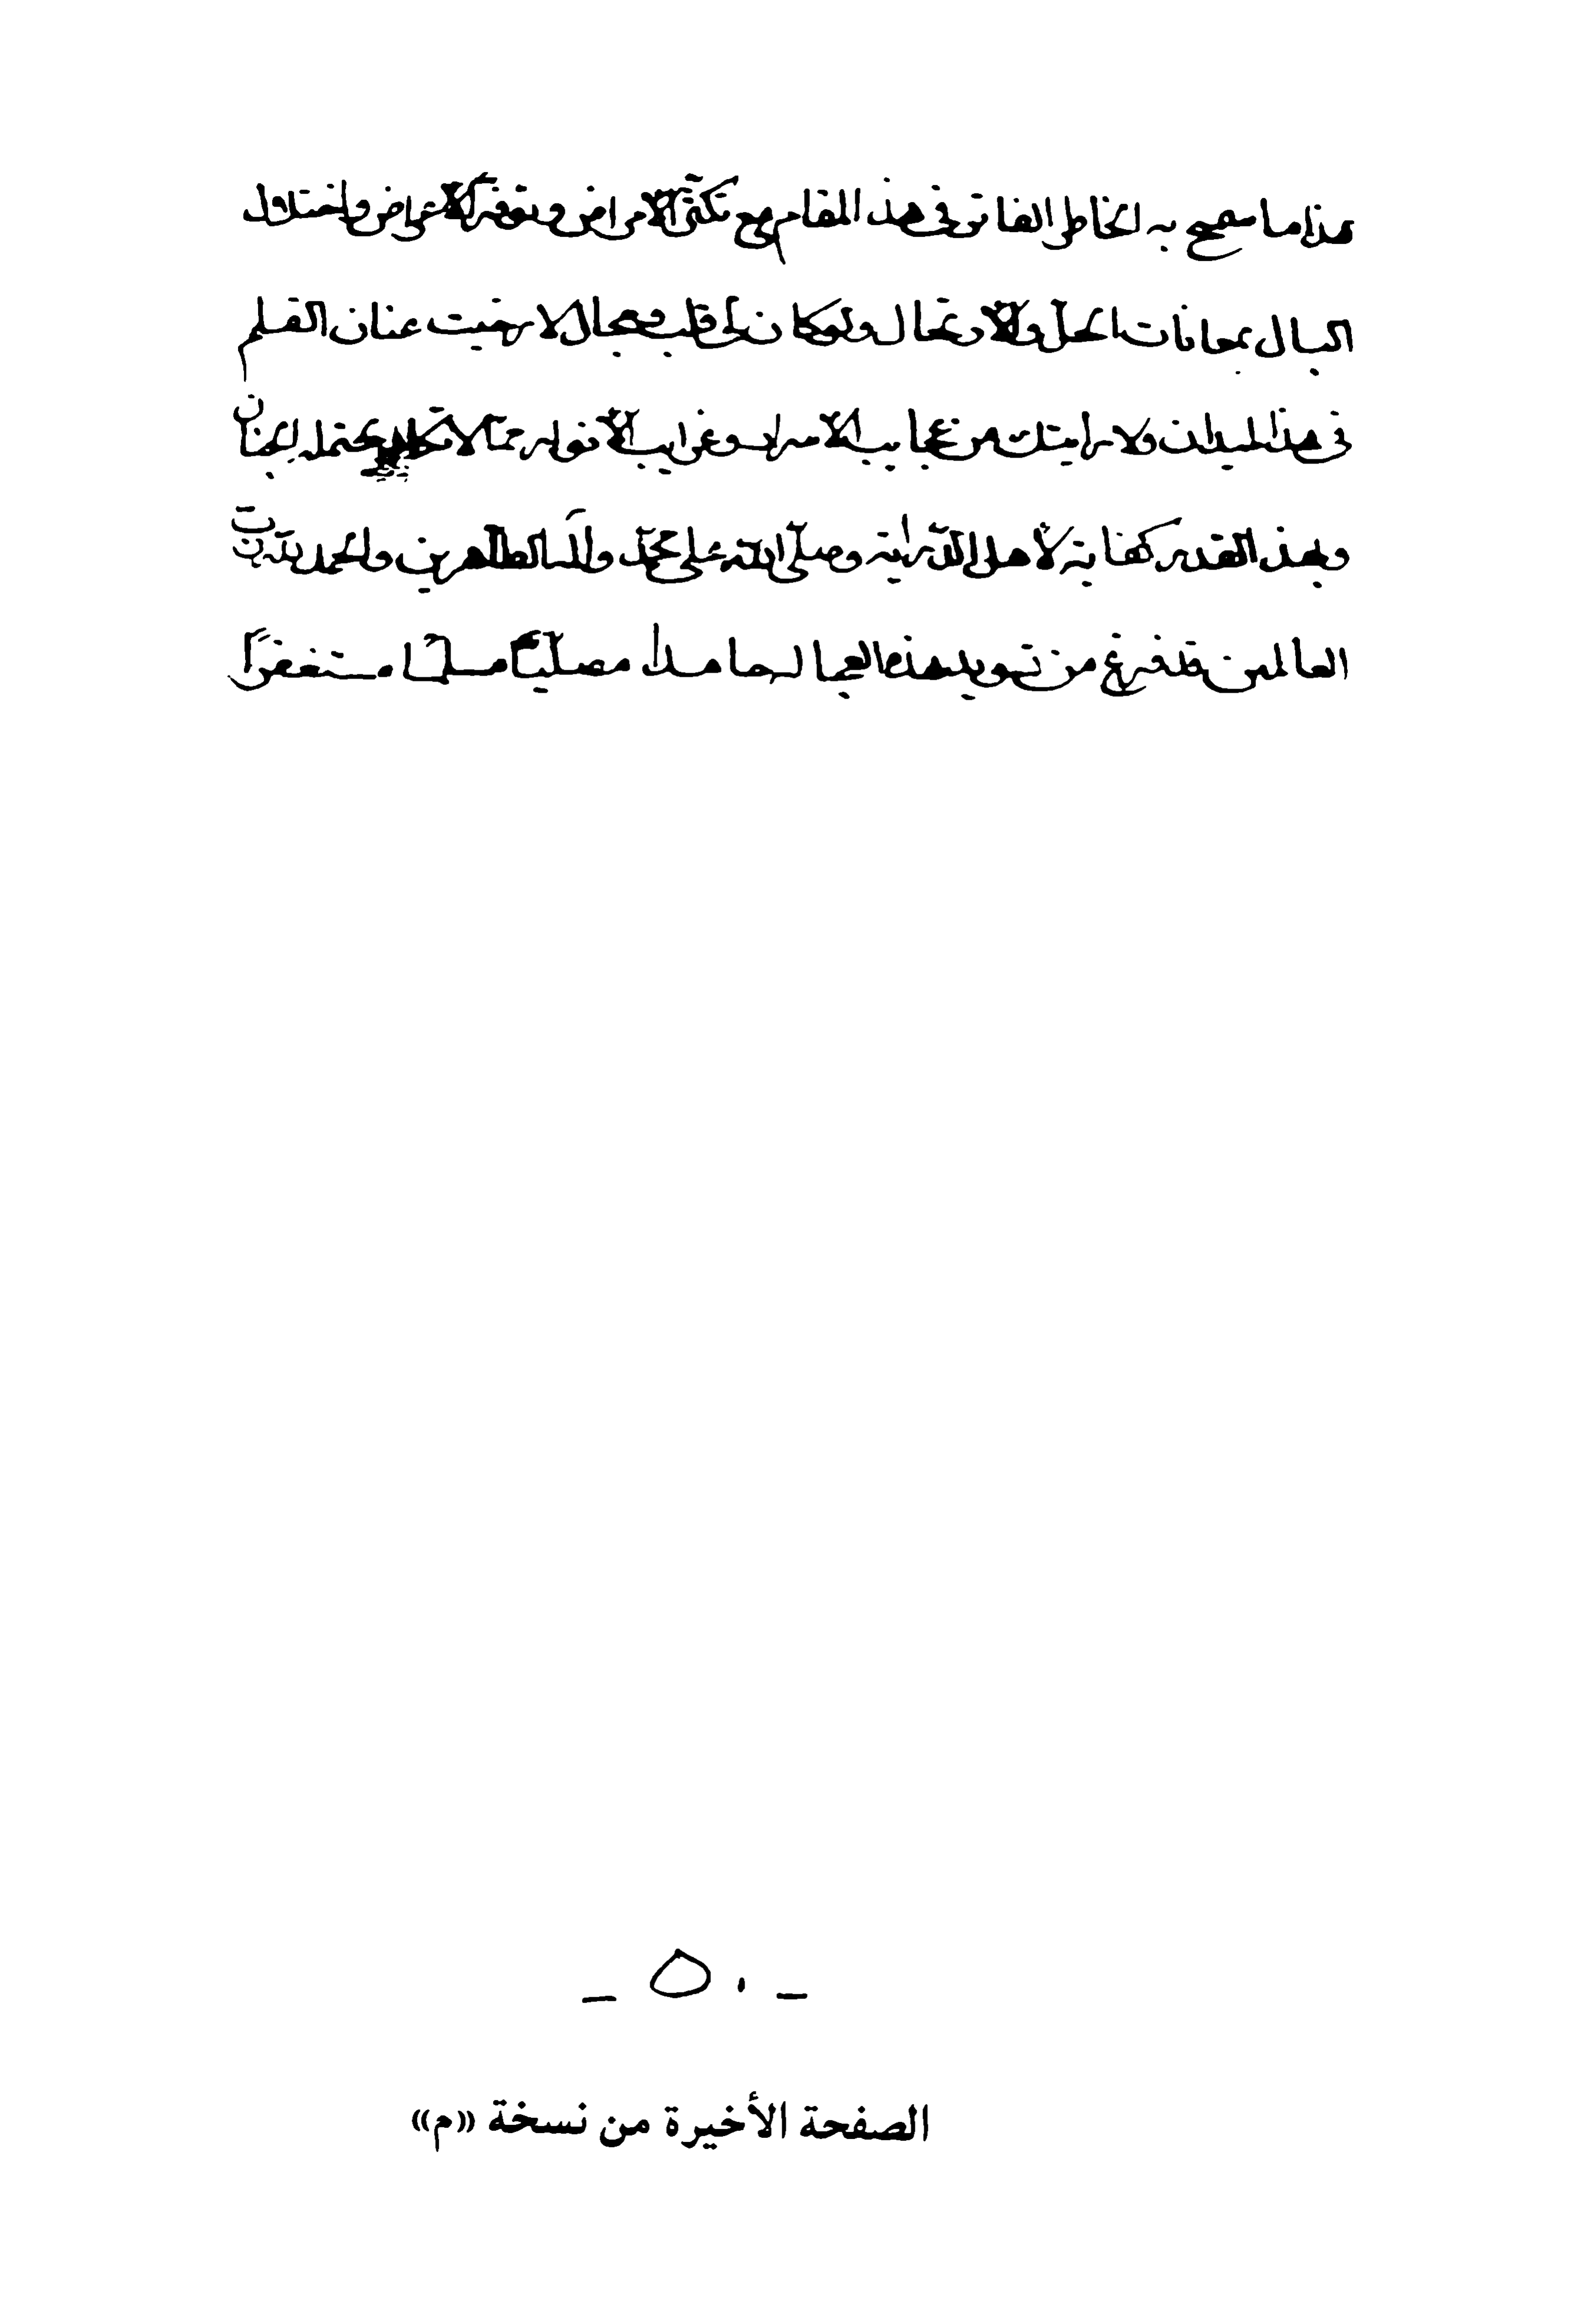 هذا ما سمح به الخاطر الفاتر في هذا المقام مع تكثر الأمراض وتوفر الأعراض واختلال
البال بمعانات الحل والارتحال ولو كان لي قلب فـي مجال لارخيت عنان القلم
في هذا الميدان ولاريتك من عجايب الأسرار وغرايب الأنوار مما لا تكاد يحتمله الجنان
وبهذا القدر كفاية لأهل الدراية وصلى الله على محمد وآله الطاهرين والحمد لله رب
العالمين قد فرغ من تسويد هذه حامدا مصليا مسلما مستغفرا
- ٥٠ -
الصفحة الأخيرة من نسخة «م»